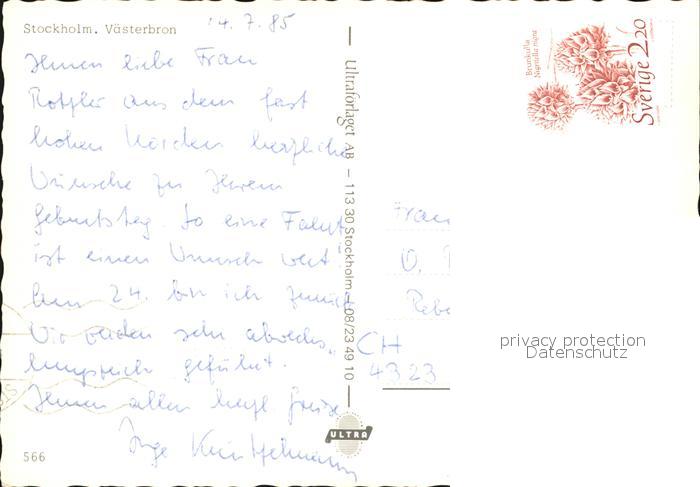 Stockholm. Västerbron
14.7.85
Ihnen liebe Frau
Rotzler aus dem fast
hohen Norden herzliche
Wünsche zu Ihrem
Geburtstag. So eine Fahrt
ist einen Wunsch wert!
Am 24. bin ich zurück
Wir werden sehr abwechs„
lungsreich geführt.
Ihnen allen herzl. Grüsse
Inge
566
Ultraförlaget AB – 113 30 Stockholm – 08/23 49 10
ULTRA
Brunkulla
Nigritella nigra
Sverige 2.20
Frau
CH
4323
privacy protection
Datenschutz